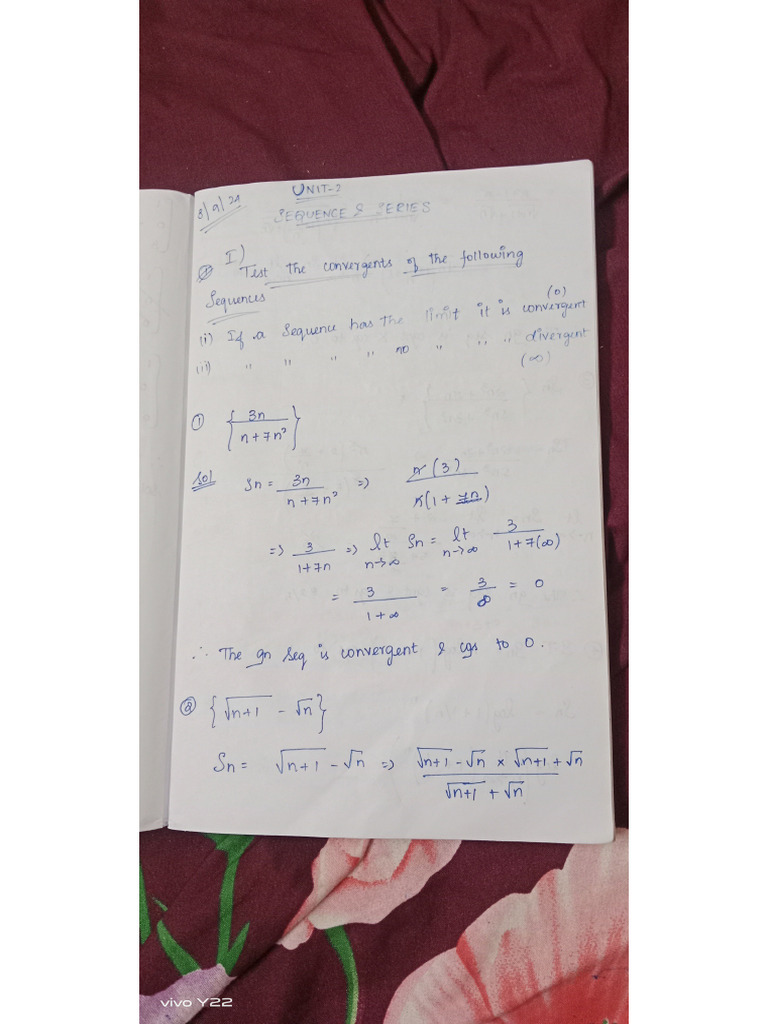 UNIT-2
3/9/24
SEQUENCE & SERIES
I)
Test the convergents of the following
Sequences
(0)
(i) If a Sequence has the limit it is convergent
(ii) " " " " no " " " divergent
(∞)
① { 3n / n+7n² }
Sol Sn = 3n / n+7n² => n(3) / n(1+7n)
=> 3 / 1+7n => lt n->∞ Sn = lt n->∞ 3 / 1+7(∞)
= 3 / 1+∞ = 3 / ∞ = 0
∴ The gn Seq is convergent & cgs to 0.
② { √n+1 - √n }
Sn = √n+1 - √n => √n+1 - √n × √n+1 + √n / √n+1 + √n
vivo Y22